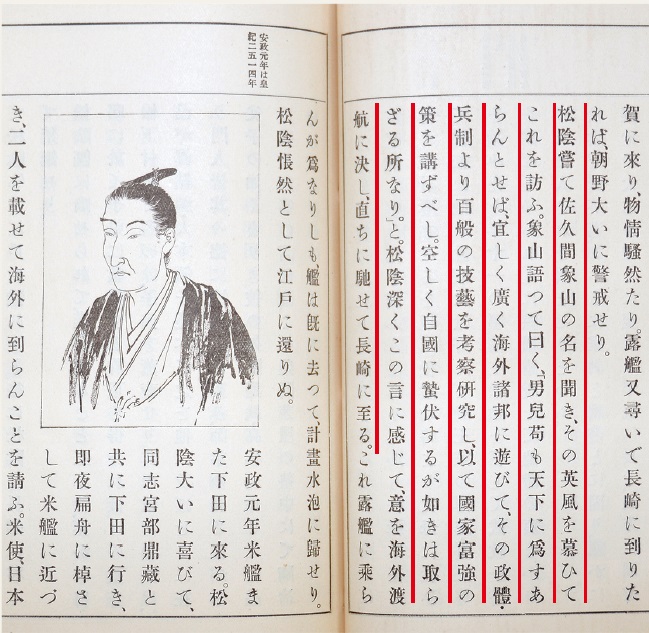 賀に來り、物情騷然たり。露艦又尋いで長崎に到りた
れば、朝野大いに警戒せり。
松陰嘗て佐久間象山の名を聞き、その英風を慕ひて
これを訪ふ。象山語つて曰く、「男兒苟も天下に爲すあ
らんとせば、宜しく廣く海外諸邦に遊びて、その政體・
兵制より百般の技藝を考察硏究し、以て國家富強の
策を講ずべし。空しく自國に蟄伏するが如きは取ら
ざる所なり」と。松陰深くこの言に感じて、意を海外渡
航に決し、直ちに馳せて長崎に至る。これ露艦に乘ら
んが爲なりしも、艦は旣に去つて、計畫水泡に歸せり。
松陰悵然として江戶に還りぬ。
安政元年は皇
紀二五一四年
安政元年米艦ま
た下田に來る。松
陰大いに喜びて、
同志宮部鼎藏と
共に下田に行き、
卽夜扁舟に棹さ
して米艦に近づ
き、二人を載せて海外に到らんことを請ふ。米使、日本